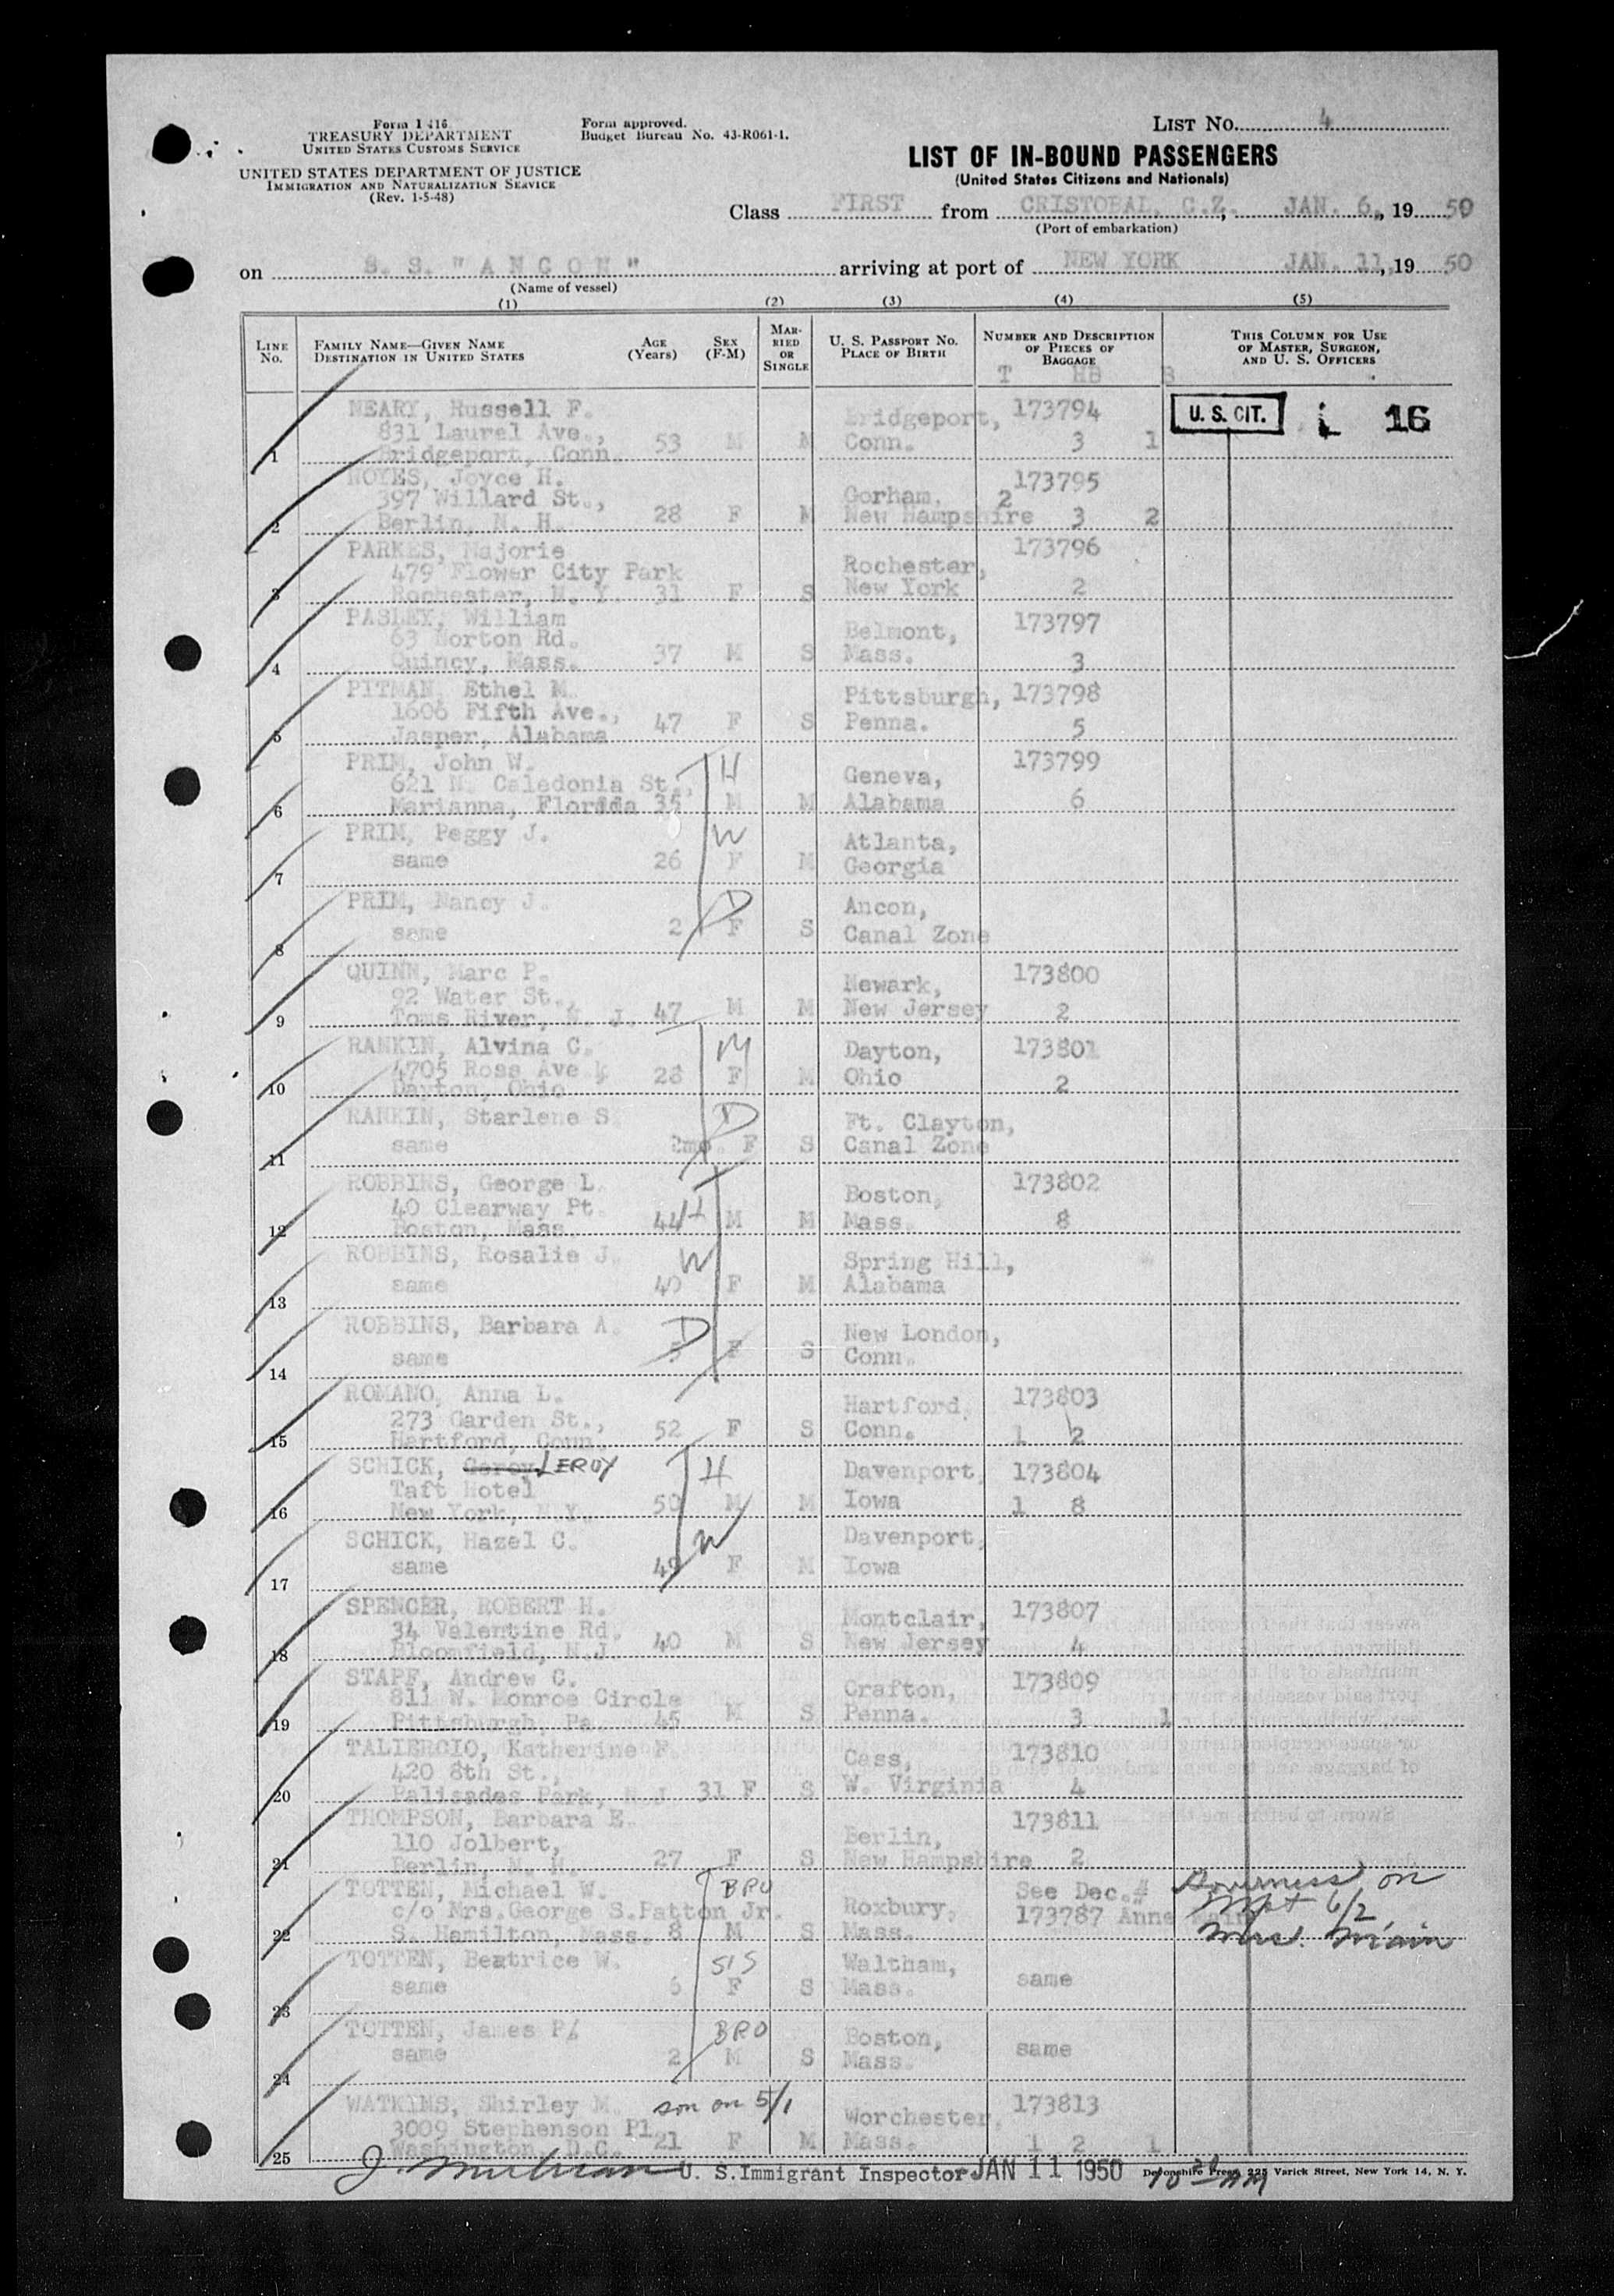 Form I 416
TREASURY DEPARTMENT
UNITED STATES CUSTOMS SERVICE
UNITED STATES DEPARTMENT OF JUSTICE
IMMIGRATION AND NATURALIZATION SERVICE
(Rev. 1-5-48)
Form approved.
Budget Bureau No. 43-R061-1.
LIST NO. 4
LIST OF IN-BOUND PASSENGERS
(United States Citizens and Nationals)
Class FIRST from CRISTOBAL, C.Z., JAN. 6, 19 50
(Port of embarkation)
on S. S. "ANCON" arriving at port of NEW YORK JAN. 11, 19 50
(Name of vessel)
(1) (2) (3) (4) (5)
LINE NO.
FAMILY NAME—GIVEN NAME
DESTINATION IN UNITED STATES
AGE (Years)
SEX (F-M)
MARRIED OR SINGLE
U. S. PASSPORT NO.
PLACE OF BIRTH
NUMBER AND DESCRIPTION OF PIECES OF BAGGAGE
T HB B
THIS COLUMN FOR USE OF MASTER, SURGEON, AND U. S. OFFICERS
U. S. CIT. 16
NEARY, Russell F. Bridgeport, 173794
831 Laurel Ave., 53 M M Conn. 3 1
1 Bridgeport, Conn.
NOYES, Joyce H. 173795
397 Willard St., Gorham, 2
2 Berlin, N. H. 28 F M New Hampshire 3 2
PARKES, Majorie 173796
479 Flower City Park Rochester,
3 Rochester, N. Y. 31 F S New York 2
PASLEY, William 173797
63 Morton Rd. Belmont,
4 Quincy, Mass. 37 M S Mass. 3
PITMAN, Ethel M. Pittsburgh, 173798
1606 Fifth Ave., 47 F S Penna. 5
5 Jasper, Alabama
PRIM, John W. 173799
621 N. Caledonia St., H Geneva,
6 Marianna, Florida 35 M M Alabama 6
PRIM, Peggy J. W Atlanta,
7 same 26 F M Georgia
PRIM, Nancy J. D Ancon,
8 same 2 F S Canal Zone
QUINN, Marc P. 173800
92 Water St., Newark,
9 Toms River, N. J. 47 M M New Jersey 2
RANKIN, Alvina C. M Dayton, 173801
4705 Ross Ave 28 F M Ohio 2
10 Dayton, Ohio
RANKIN, Starlene S. D Ft. Clayton,
11 same 2mo. F S Canal Zone
ROBBINS, George L. 173802
40 Clearway Pt. H Boston,
12 Boston, Mass. 44 M M Mass. 8
ROBBINS, Rosalie J. W Spring Hill,
13 same 40 F M Alabama
ROBBINS, Barbara A. D New London,
14 same 5 F S Conn.
ROMANO, Anna L. 173803
273 Garden St., Hartford,
15 Hartford, Conn. 52 F S Conn. 1 2
SCHICK, LEROY H Davenport, 173804
Taft Hotel
16 New York, N.Y. 50 M M Iowa 1 8
SCHICK, Hazel C. W Davenport,
17 same 49 F M Iowa
SPENCER, ROBERT H. 173807
34 Valentine Rd. Montclair,
18 Bloomfield, N.J. 40 M S New Jersey 4
STAPF, Andrew C. 173809
811 W. Monroe Circle Crafton,
19 Pittsburgh, Pa. 45 M S Penna. 3 1
TALIERCIO, Katherine F. 173810
420 8th St., Cass,
20 Palisades Park, N.J. 31 F S W. Virginia 4
THOMPSON, Barbara E. 173811
110 Jolbert, Berlin,
21 Berlin, N. H. 27 F S New Hampshire 2
TOTTEN, Michael W. BRO See Dec.# Governess on
c/o Mrs.George S.Patton Jr. Roxbury, 173787 Anne 6/2
22 S. Hamilton, Mass. 8 M S Mass. Mrs.
TOTTEN, Beatrice W. SIS Waltham,
23 same 6 F S Mass. same
TOTTEN, James P. BRO Boston,
24 same 2 M S Mass. same
WATKINS, Shirley M. son on 5/1 173813
3009 Stephenson Pl Worchester,
25 Washington, D.C. 21 F M Mass. 1 2 1
U. S. Immigrant Inspector JAN 11 1950 Devonshire Press, 225 Varick Street, New York 14, N. Y.